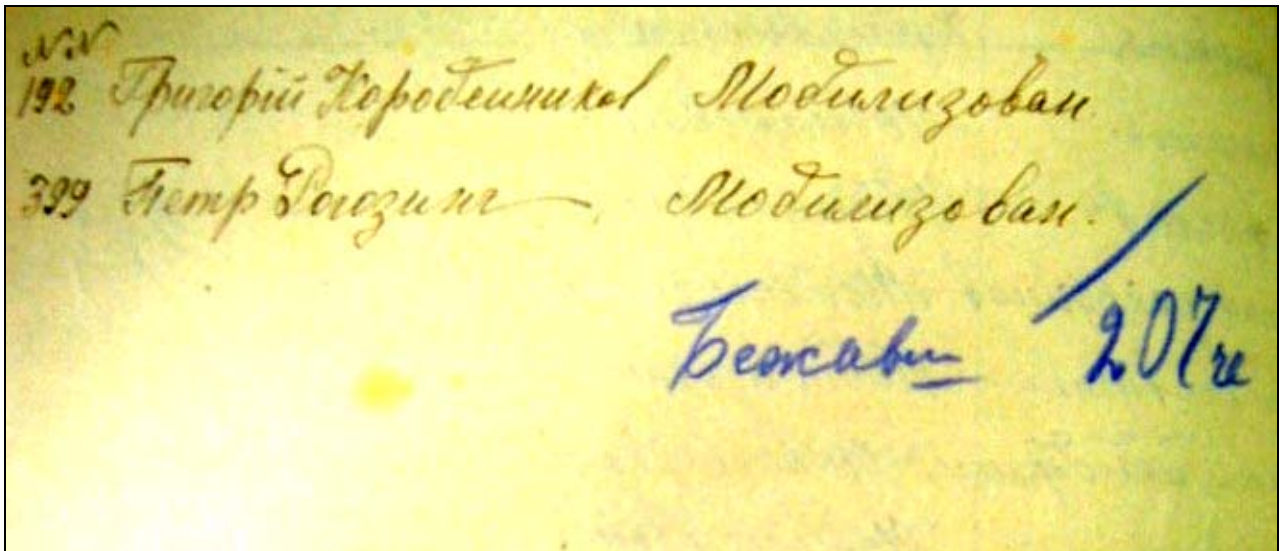 NN
192 Григорій Коробейников Мобилизован.
399 Петр Рогозинг Мобилизован.
Бежавш / 207 че